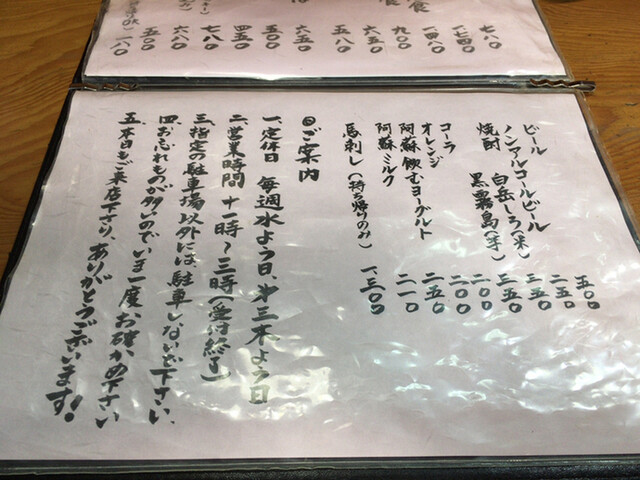 七八〇
一、七四〇
一、四八〇
九〇〇
六五〇
五八〇
六五〇
五〇〇
四五〇
七八〇
六八〇
五〇〇
一八〇
ビール 五〇〇
ノンアルコールビール 三五〇
焼酎 白岳しろ(米) 三五〇
黒霧島(芋) 三五〇
コーラ 二〇〇
オレンジ 二〇〇
阿蘇飲むヨーグルト 二五〇
阿蘇ミルク 二一〇
馬刺し(持ち帰りのみ) 一、三〇〇
◎ご案内
一、定休日 毎週水よう日、第三木よう日
二、営業時間 十一時〜三時(受付終了)
三、指定の駐車場以外には駐車しないで下さい、
四、おわすれものが多いのでいま一度、お確かめ下さい
五、本日もご来店下さり、ありがとうございます!